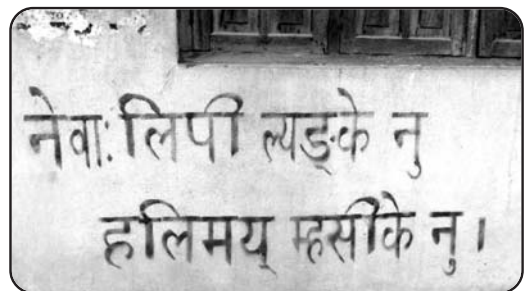 नेवाः लिपी ल्यङ्के नु
हलिमय् म्हसीके नु।